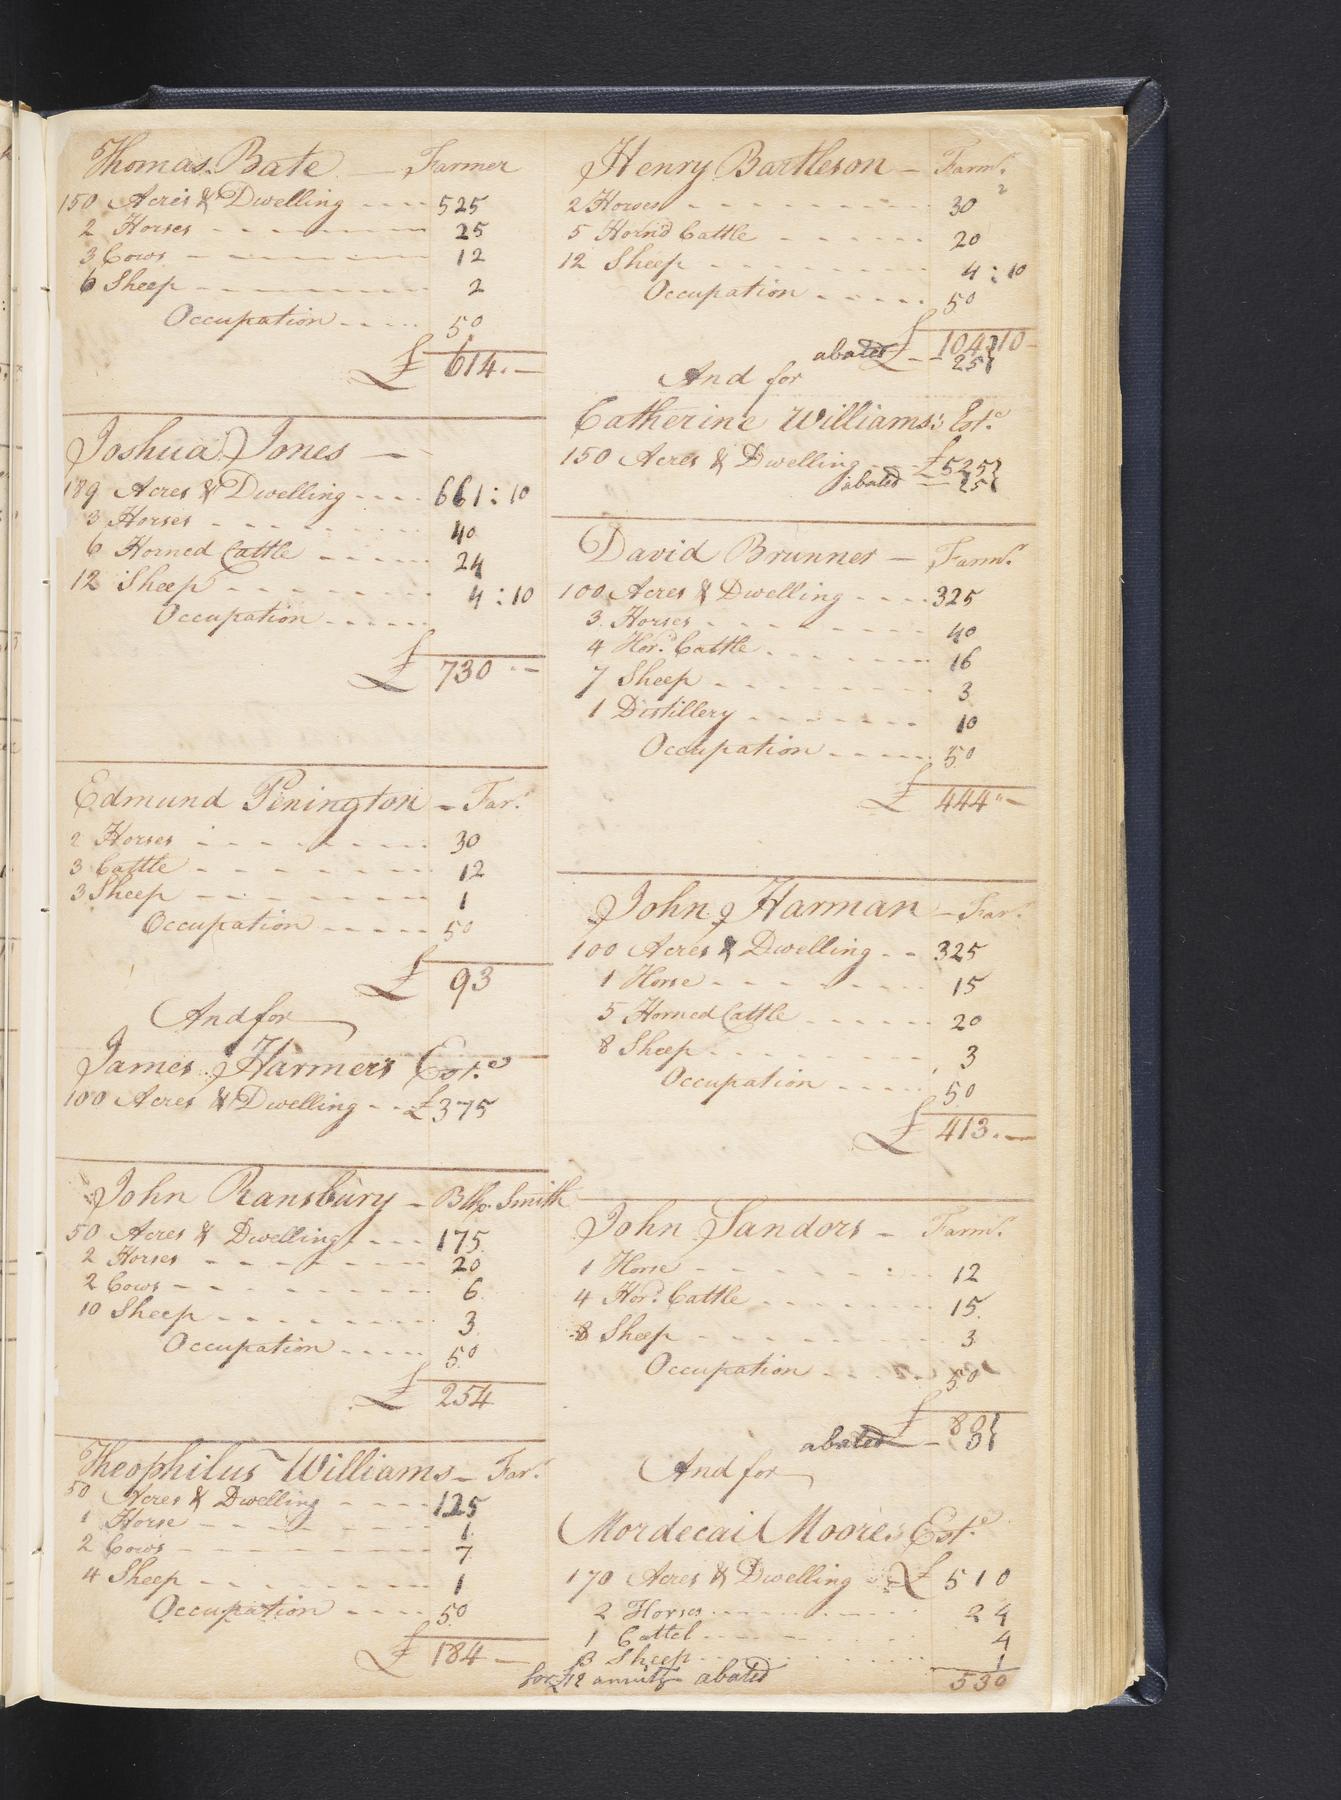 Thomas Bate — Farmer
150 Acres & Dwelling ---- 525
2 Horses - - - - 25
3 Cows - - - - 12
6 Sheep - - - - 2
Occupation ---- 50
£ 614.—
Joshua Jones —
189 Acres & Dwelling ---- 661:10
3 Horses - - - - 40
6 Horned Cattle - - - - 24
12 Sheep - - - - 4:10
Occupation -----
£ 730 --
Edmund Penington — Far.r
2 Horses - - - - 30
3 Cattle - - - - 12
3 Sheep - - - - 1
Occupation ----- 50
£ 93
And for
James Harmer's Est.e
100 Acres & Dwelling -- £375
John Ransbury — Blk. Smith
50 Acres & Dwelling --- 175
2 Horses - - - - 20
2 Cows - - - - 6
10 Sheep - - - - 3
Occupation ---- 50
£ 254
Theophilus Williams — Far.r
50 Acres & Dwelling ---- 125
1 Horse - - - - 1
2 Cows - - - - 7
4 Sheep - - - - 1
Occupation ---- 50
£ 184 —
Henry Bartleson — Farm.r
2 Horses - - - - 30
5 Horn'd Cattle - - - - 20
12 Sheep - - - - 4:10
Occupation ---- 50
£ 104:10 —
abated — 25
And for
Catherine Williams's Est.e
150 Acres & Dwelling -- £525
abated — 25
David Brunner — Farm.r
100 Acres & Dwelling ---- 325
3 Horses - - - - 40
4 Hor.d Cattle - - - - 16
7 Sheep - - - - 3
1 Distillery - - - - 10
Occupation ----- 50
£ 444.—
John Harman — Far.r
100 Acres & Dwelling -- 325
1 Horse - - - - 15
5 Horned Cattle - - - - 20
8 Sheep - - - - 3
Occupation ---- 50
£ 413.—
John Sandors — Farm.r
1 Horse - - - - 12
4 Hor.d Cattle - - - - 15
8 Sheep - - - - 3
Occupation ---- 50
£ 80
abated —
And for
Mordecai Moore's Est.e
170 Acres & Dwelling - £ 510
2 Horses - - - - 24
1 Cattel - - - - 4
3 Sheep - - - - 1
for £12 annuity abated 530